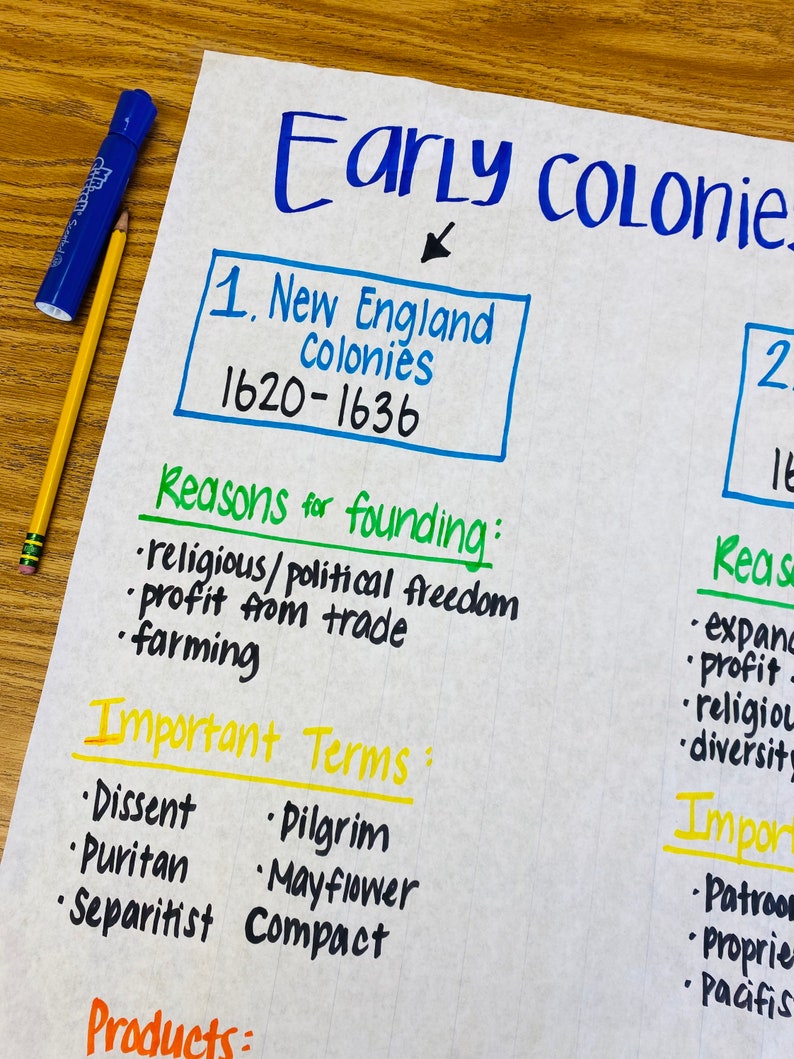 Early Colonies
1. New England
Colonies
1620-1636
Reasons for founding:
·religious/political freedom
·profit from trade
·farming
Important Terms:
·Dissent
·Puritan
·Separitist
·Pilgrim
·Mayflower
Compact
Products:
2.
Reas
·expan
·profit
·religiou
·diversity
Import
·Patroon
·proprie
·pacifis
Mr. Sketch
Scented